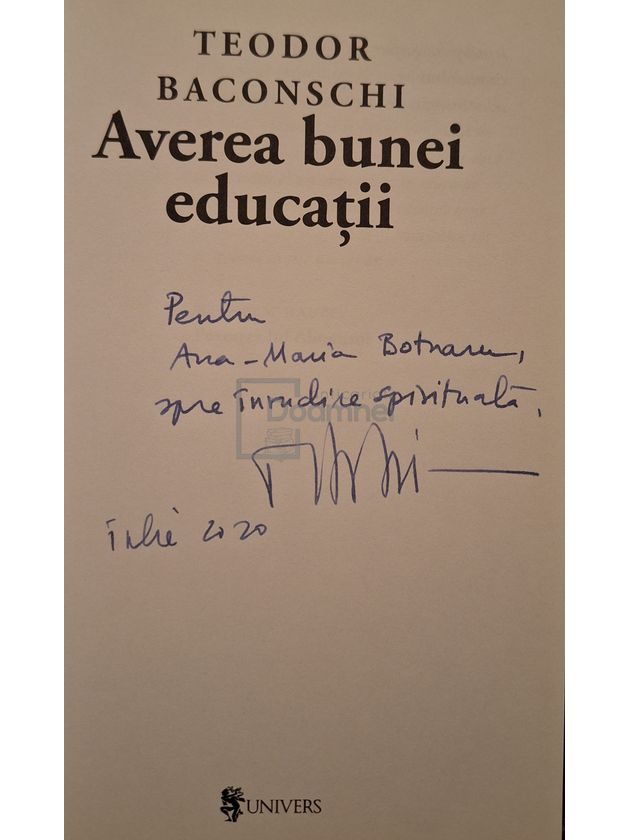 TEODOR
BACONSCHI
Averea bunei
educației
Pentru
Ana-Maria Botnaru,
spre înrudire spirituală,
iulie 2020
UNIVERS